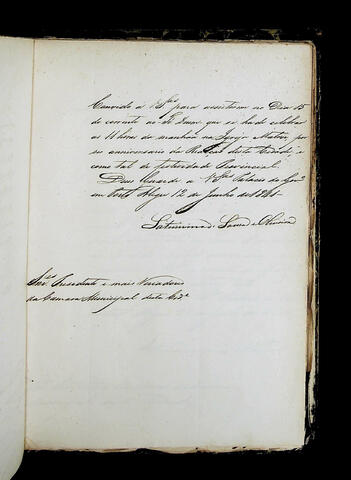 Convido a V. S.ªs para assistirem no Dia 15
do corrente ao Te Deum que se ha de celebrar
as 11 horas da manhãa na Igreja Matriz, por
ser anniversario da desta Cidade, e
como tal de festividade Provincial.
Deos Guarde a V. S.ªs Palacio do Gov.º
em Porto Alegre 12 de Junho de 1841.
Saturnino de Souza e Oliveira
Snr.es Presidente e mais Vereadores
da Camara Municipal desta Cid.e